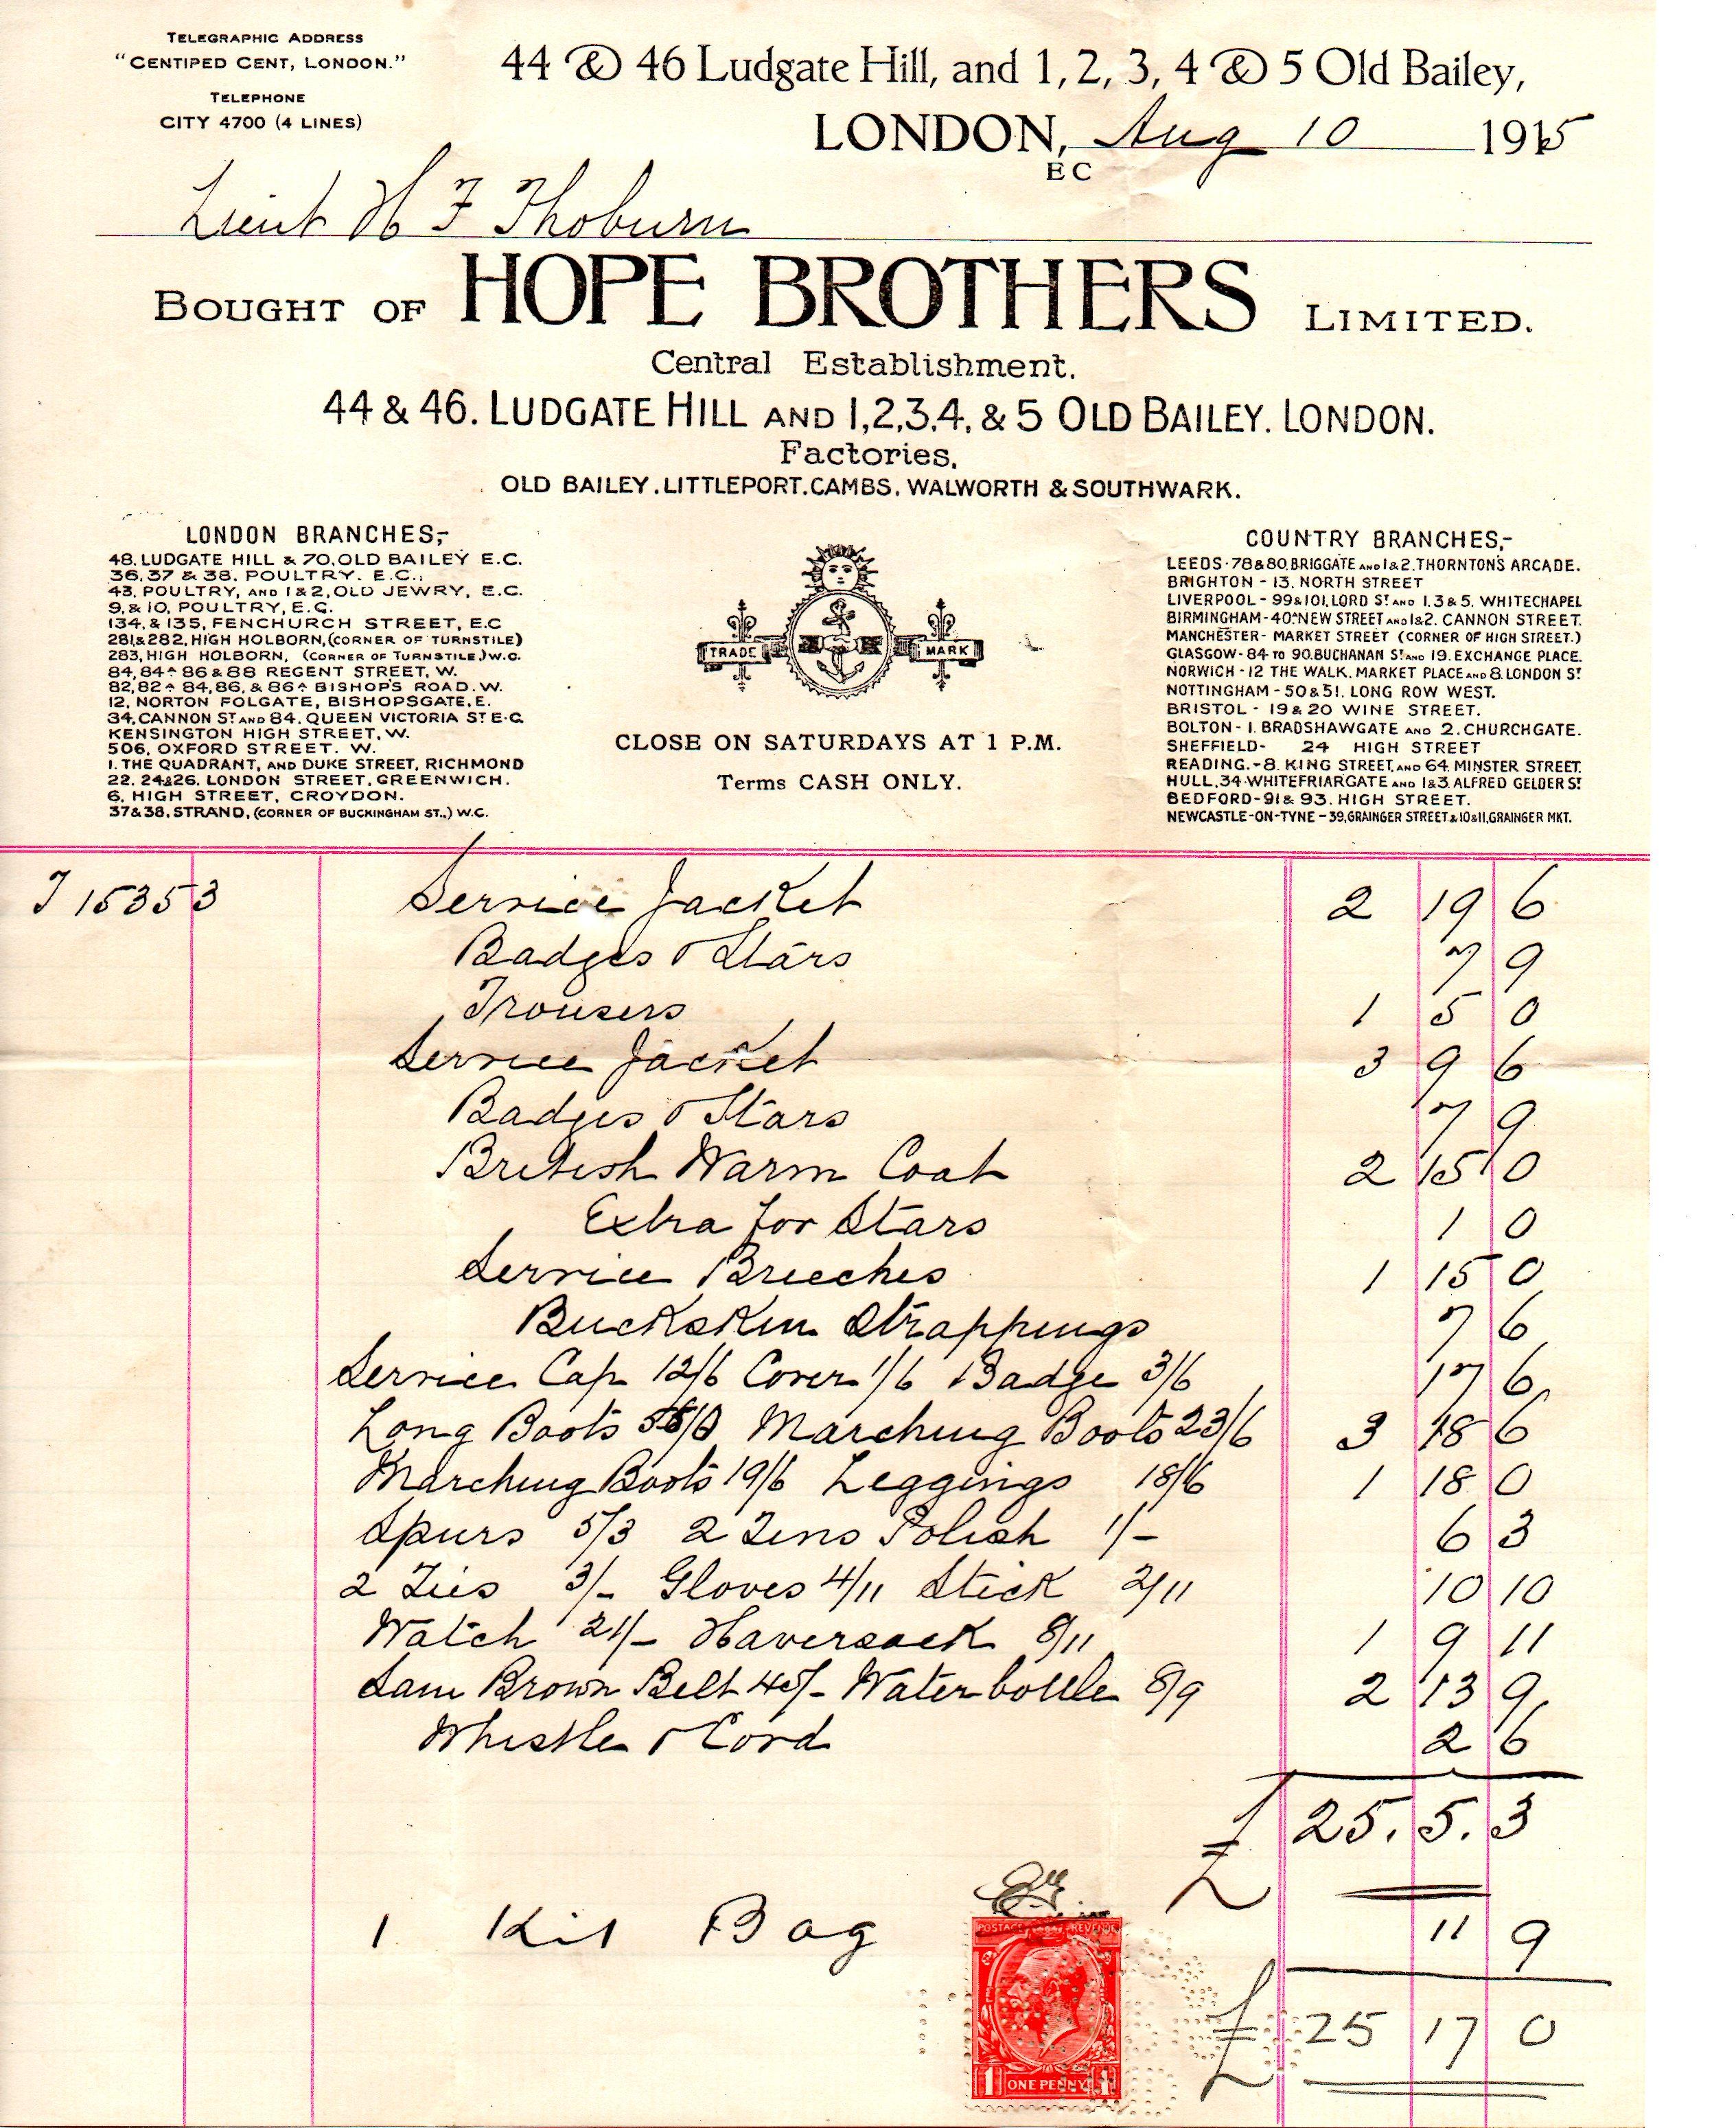 TELEGRAPHIC ADDRESS
"CENTIPED CENT, LONDON."
TELEPHONE
CITY 4700 (4 LINES)
44 & 46 Ludgate Hill, and 1, 2, 3, 4 & 5 Old Bailey,
LONDON, Aug 10 1915
EC
Lieut H F Thoburn
BOUGHT OF HOPE BROTHERS LIMITED.
Central Establishment.
44 & 46. LUDGATE HILL AND 1,2,3,4, & 5 OLD BAILEY. LONDON.
Factories,
OLD BAILEY. LITTLEPORT. CAMBS. WALWORTH & SOUTHWARK.
LONDON BRANCHES;-
48. LUDGATE HILL & 70, OLD BAILEY E.C.
36, 37 & 38. POULTRY. E.C.
43. POULTRY, AND 1 & 2, OLD JEWRY, E.C.
9, & 10, POULTRY, E.C.
134, & 135, FENCHURCH STREET, E.C
281 & 282, HIGH HOLBORN, (CORNER OF TURNSTILE)
283, HIGH HOLBORN, (CORNER OF TURNSTILE) W.C.
84, 84A 86 & 88 REGENT STREET, W.
82, 82A 84, 86, & 86A BISHOP'S ROAD. W.
12, NORTON FOLGATE, BISHOPSGATE, E.
34. CANNON ST AND 84. QUEEN VICTORIA ST E.C.
KENSINGTON HIGH STREET, W.
506, OXFORD STREET. W.
1. THE QUADRANT, AND DUKE STREET, RICHMOND
22. 24 & 26. LONDON STREET, GREENWICH.
6, HIGH STREET, CROYDON.
37 & 38. STRAND, (CORNER OF BUCKINGHAM ST.,) W.C.
TRADE MARK
CLOSE ON SATURDAYS AT 1 P.M.
Terms CASH ONLY.
COUNTRY BRANCHES,-
LEEDS - 78 & 80. BRIGGATE AND 1 & 2. THORNTON'S ARCADE.
BRIGHTON - 13. NORTH STREET
LIVERPOOL - 99 & 101, LORD ST AND 1. 3 & 5. WHITECHAPEL
BIRMINGHAM - 40A NEW STREET AND 1 & 2. CANNON STREET.
MANCHESTER - MARKET STREET (CORNER OF HIGH STREET.)
GLASGOW - 84 TO 90. BUCHANAN ST AND 19. EXCHANGE PLACE.
NORWICH - 12 THE WALK. MARKET PLACE AND 8. LONDON ST
NOTTINGHAM - 50 & 51. LONG ROW WEST.
BRISTOL - 19 & 20 WINE STREET.
BOLTON - 1. BRADSHAWGATE AND 2. CHURCHGATE.
SHEFFIELD - 24 HIGH STREET
READING. - 8. KING STREET, AND 64. MINSTER STREET.
HULL, 34 WHITEFRIARGATE AND 1 & 3. ALFRED GELDER ST
BEDFORD - 91 & 93. HIGH STREET.
NEWCASTLE-ON-TYNE - 39, GRAINGER STREET & 10 & 11, GRAINGER MKT.
J 15353 Service Jacket 2 19 6
Badges & Stars 7 9
Trousers 1 5 0
Service Jacket 3 9 6
Badges & Stars 7 9
British Warm Coat 2 15 0
Extra for Stars 1 0
Service Breeches 1 15 0
Buckskin Strappings 7 6
Service Cap 12/6 Cover 1/6 Badge 3/6 17 6
Long Boots Marching Boots 23/6 3 18 6
Marching Boots 19/6 Leggings 18/6 1 18 0
Spurs 5/3 2 Tins Polish 1/- 6 3
2 Ties 3/- Gloves 4/11 Stick 2/11 10 10
Watch 21/- Haversack 8/11 1 9 11
Sam Brown Belt 45/- Water bottle 8/9 2 13 9
Whistle & Cord 2 6
£ 25. 5. 3
1 Kit Bag 11 9
POSTAGE REVENUE
1 ONE PENNY 1
£ 25 17 0